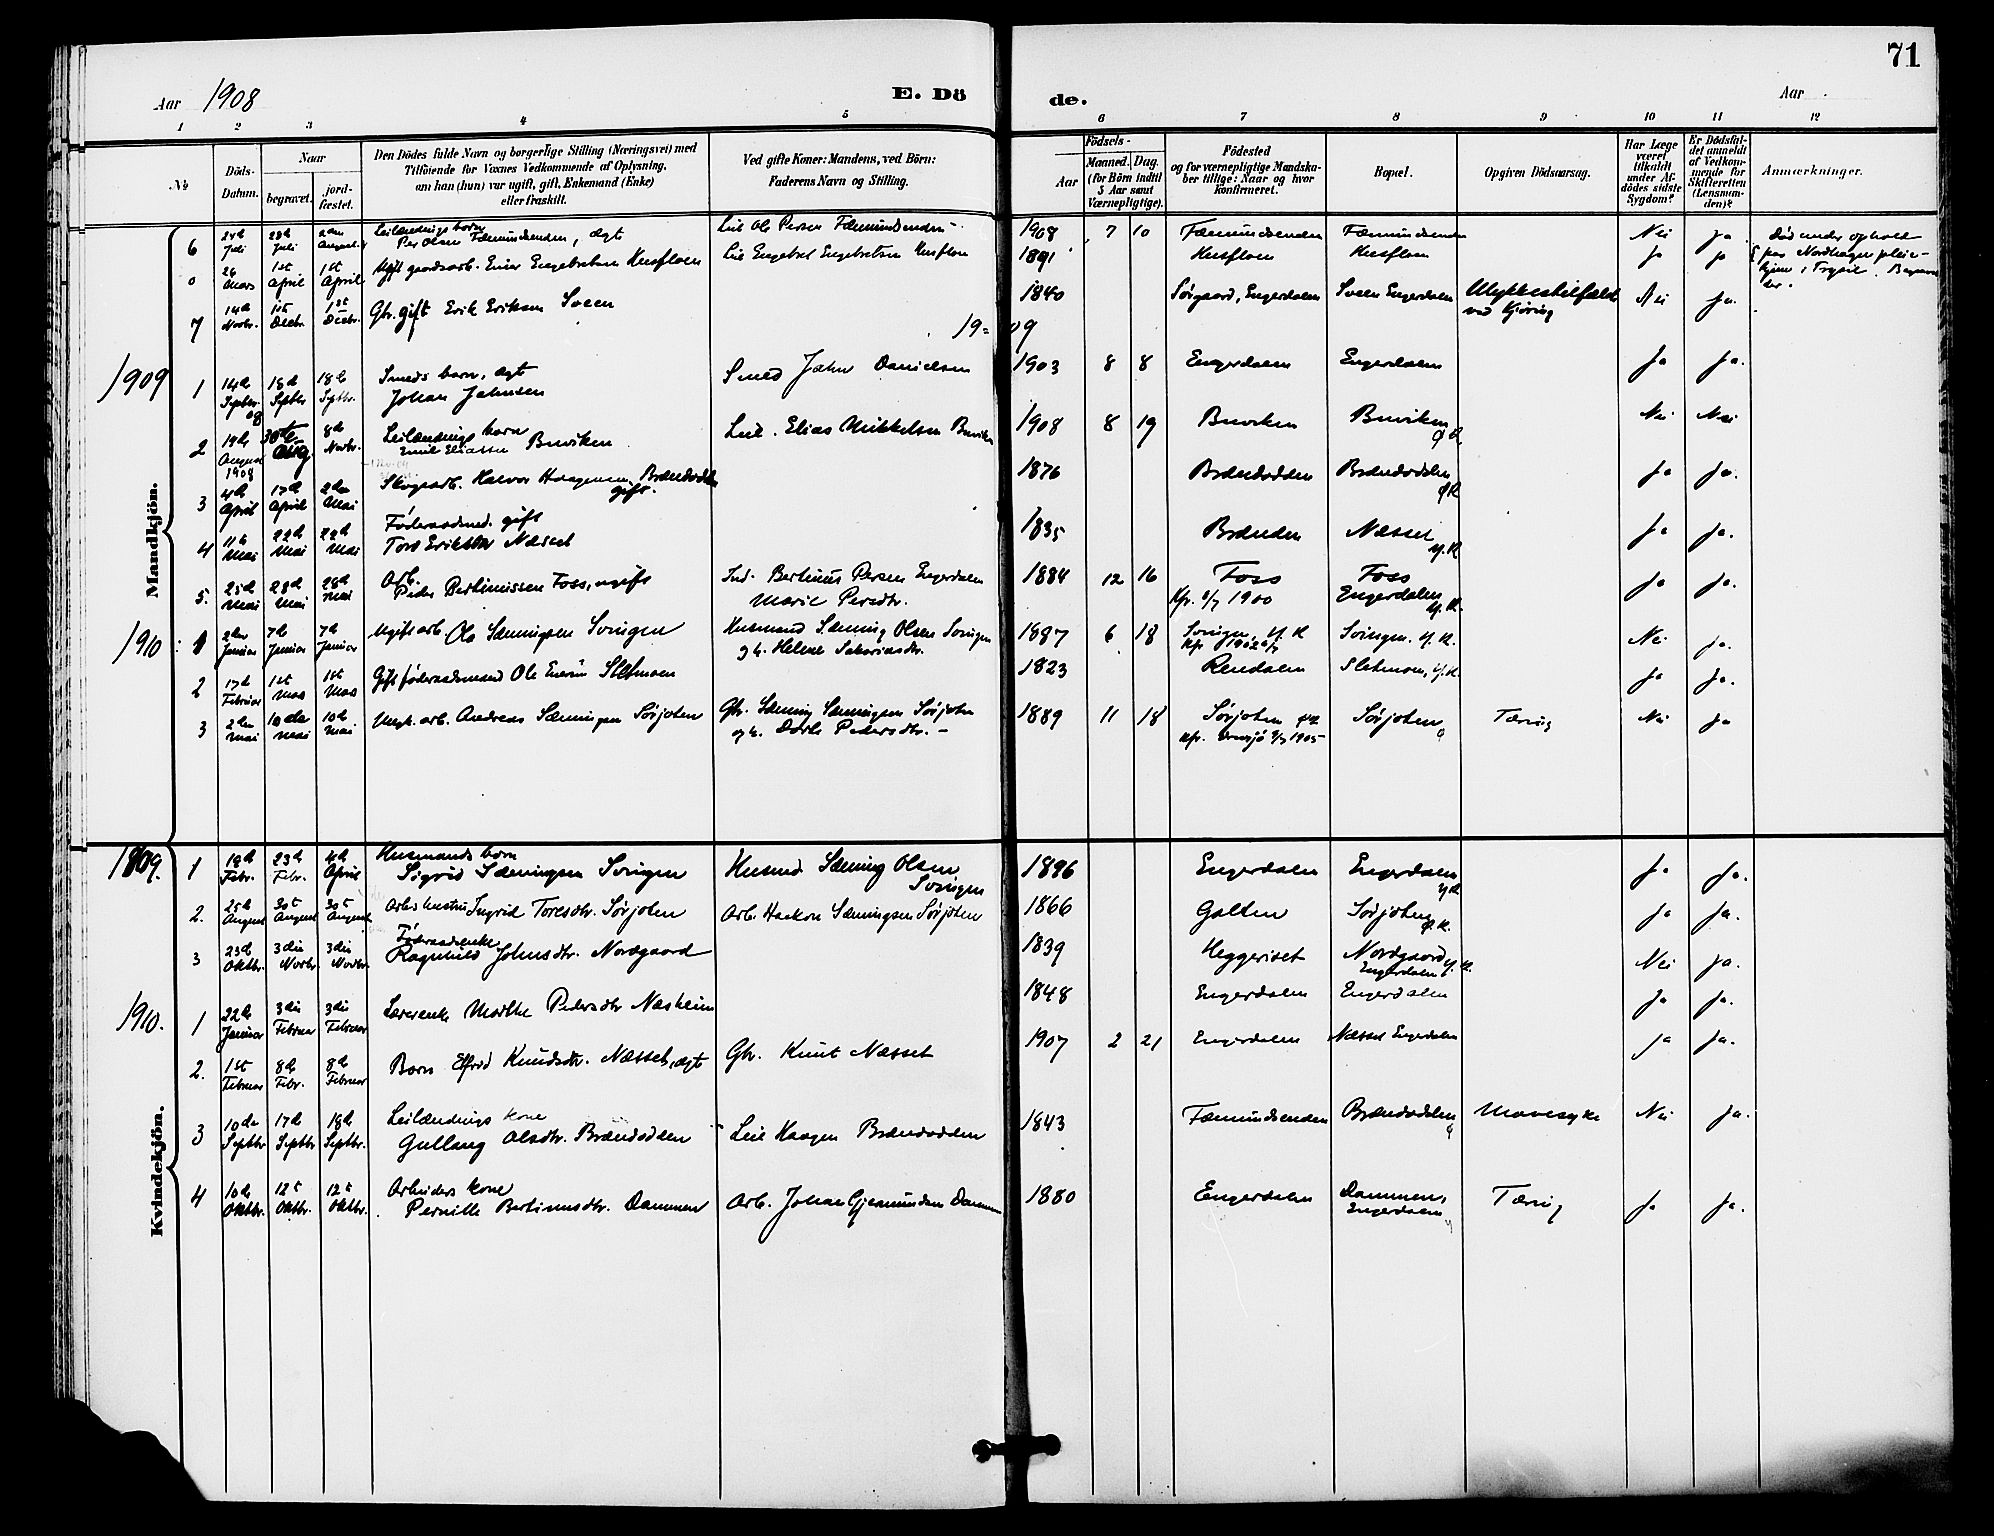 71
Aar 1908
E. Dö
de.
Aar
1 2 3 4 5 6 7 8 9 10 11 12
№
Döds-Datum.
Naar
begravet.
jord-fæstet.
Den Dödes fulde Navn og borgerlige Stilling (Næringsvei) med
Tilföiende for Voxnes Vedkommende af Oplysning,
om han (hun) var ugift, gift, Enkemand (Enke)
eller fraskilt.
Ved gifte Koner: Mandens, ved Börn:
Faderens Navn og Stilling.
Födsels-
Aar
Maaned. Dag.
(for Börn indtil
5 Aar samt
Værnepligtige).
Födested
og for værnepligtige Mandska-
ber tillige: Naar og hvor
konfirmeret.
Bopæl.
Opgiven Dödsaarsag.
Har Læge
været
tilkaldt
under Af-
dödes sidste
Sygdom?
Er Dödsfal-
det anmeldt
af Vedkom-
mende for
Skifteretten
(Lensman-
den)?
Anmærkninger.
Mandkjön.
6 24de Juli 28de Juli 2den August Leilændings barn Per Olsen Fæmundsenden, ægt Leil Ole Persen Fæmundsenden 1908 7 10 Fæmundsenden Fæmundsenden Nei ja
0 26 Mars 1st April 1st April Ugift gaardsarb. Einar Engebretsen Husfloen Leil Engebret Engebretsen Husfloen 1891 Husfloen Husfloen Ja ja Død under ophold paa Nordhagen pleie-hjem i Trysil.
7 14de Novbr. 1st Decbr. 1st Decbr. Gbr. gift Erik Eriksen Sveen 1840 Sørgaard, Engerdalen Sveen Engerdalen Ulykkestilfælde ved Kjøring Nei Ja.
19=09
1909 1 14de Septbr. 18de Septbr 18de Septbr. Smeds barn, ægt Johan Jahnsen Smed Jahn Danielsen 1903 8 8 Engerdalen Engerdalen Ja Ja.
2 19de August 1908 30te Aug 8de Novbr. Leilændings barn Emil Eliassen Buviken Leil. Elias Mikkelsen Buviken 1908 8 19 Buviken Buviken Nei Nei
3 4de April 17de April 2den Mai Skogsarb. Halvor Haagensen Brændodden gift. 1876 Brændodden Brændodden Ja Ja.
4 11te Mai 22de Mai 22de Mai Føderaadsmd. gift Tore Eriksen Næsset 1835 Brænden Næsset Ja Ja.
5. 25de Mai 28de Mai 28de Mai Arb. Peder Bertinussen Foss, ugift Ind. Bertinus Persen Engerdalen Marie Persdtr. 1884 12 16 Foss Kfr. 1900 Foss Engerdalen Ja Ja.
1910 1 2den Januar 7de Januar 7de Januar Ugift arb. Ole Sæmingsen Svingen Husmand Sæming Olsen Svingen og h. Helene Sakariasdtr. 1887 6 18 Svingen Kfr 1902 Svingen Nei ja.
2 17de Februar 1st Mars 1st Mars Gift føderaadsmand Ole Sletmoen 1823 Rendalen Sletmoen Ja Ja.
3 2den Mai 10de Mai 10de Mai Ungk. arb. Andreas Sæmingsen Sørjoten Gbr. Sæming Sæmingsen Sørjoten og h. Dorte Pedersdtr. 1889 11 18 Sørjoten Kfr. 1905 Sørjoten Tæring Nei Ja
Kvindekjön.
1909. 1 18de Febr. 23de Febr. 4de April Husmands barn Sigrid Sæmingsen Svingen Husmd Sæming Olsen Svingen 1896 Engerdalen Engerdalen Ja Ja.
2. 25de August 30t August 30t August Arb. hustru Ingrid Toresdtr. Sørjoten Arb. Haakon Sæmingsen Sørjoten 1866 Galten Sørjoten Ja Ja.
3 23de Oktbr. 3die Novbr. 3die Novbr. Føderaadsenke Ragnhild Johnsdtr. Nordgaard 1839 Heggeriset Nordgaard Engerdalen Nei Ja.
1910. 1 22de Januar 3die Februar 3die Februar Lærerenke Marthe Pedersdtr Næsheim 1848 Engerdalen Engerdalen Ja Ja.
2. 1st Februar 8de Febr. 8de Februar Barn Elfrid Knudsdtr. Næsset, ægt Gbr. Knut Næsset 1907 2 21 Engerdalen Næsset Engerdalen Ja Ja.
3 10de Septbr 17de Septbr 18de Septbr. Leilændings kone Gullaug Olsdtr. Brændodden Leil Haagen Brændodden 1843 Fæmundsenden Brændodden Mavesyke Nei Ja.
4 10de Oktbr. 12t Oktbr. 12t Oktbr. Arbeiders kone Pernille Bertinusdtr. Dammen Arb. Johan Gjermundsen Dammen 1880 Engerdalen Dammen, Engerdalen Tæring Ja Ja.